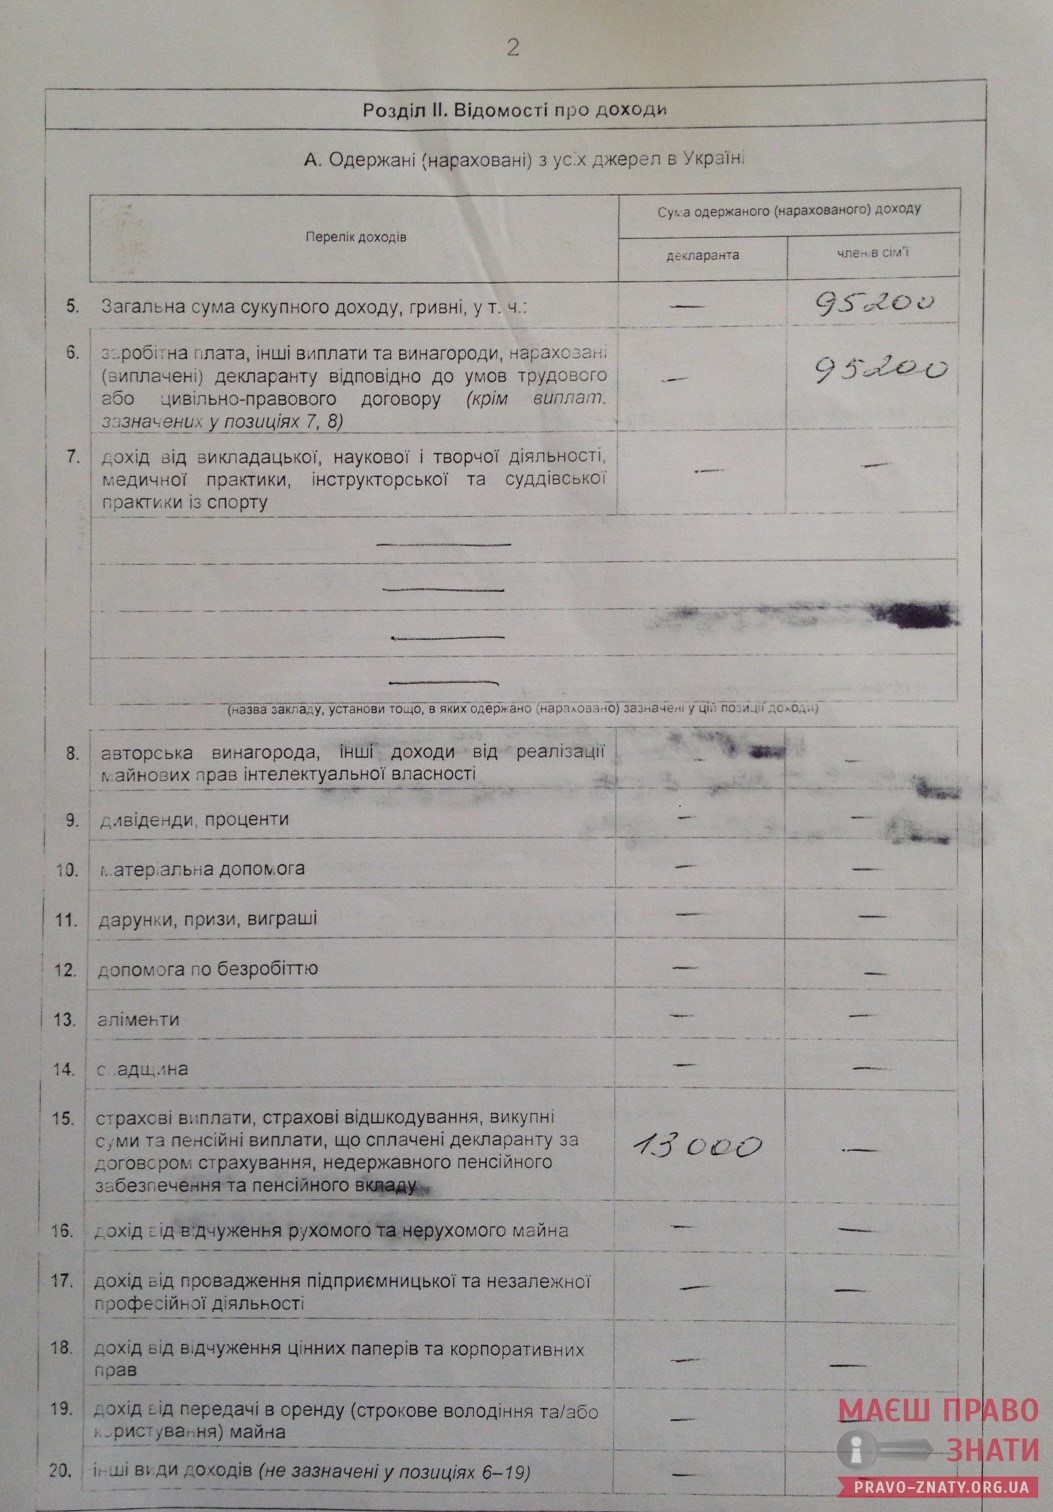 2
Розділ II. Відомості про доходи
А. Одержані (нараховані) з усіх джерел в Україні
Перелік доходів
Сума одержаного (нарахованого) доходу
декларанта
членів сім'ї
5. Загальна сума сукупного доходу, гривні, у т. ч.: — 95200
6. заробітна плата, інші виплати та винагороди, нараховані
(виплачені) декларанту відповідно до умов трудового — 95200
або цивільно-правового договору (крім виплат,
зазначених у позиціях 7, 8)
7. дохід від викладацької, наукової і творчої діяльності,
медичної практики, інструкторської та суддівської — —
практики із спорту
(назва закладу, установи тощо, в яких одержано (нараховано) зазначені у цій позиції доходи)
8. авторська винагорода, інші доходи від реалізації — —
майнових прав інтелектуальної власності
9. дивіденди, проценти — —
10. матеріальна допомога — —
11. дарунки, призи, виграші — —
12. допомога по безробіттю — —
13. аліменти — —
14. спадщина — —
15. страхові виплати, страхові відшкодування, викупні
суми та пенсійні виплати, що сплачені декларанту за 13000 —
договором страхування, недержавного пенсійного
забезпечення та пенсійного вкладу
16. дохід від відчуження рухомого та нерухомого майна — —
17. дохід від провадження підприємницької та незалежної — —
професійної діяльності
18. дохід від відчуження цінних паперів та корпоративних — —
прав
19. дохід від передачі в оренду (строкове володіння та/або — —
користування) майна
20. інші види доходів (не зазначені у позиціях 6–19) — —
МАЄШ ПРАВО
ЗНАТИ
PRAVO-ZNATY.ORG.UA